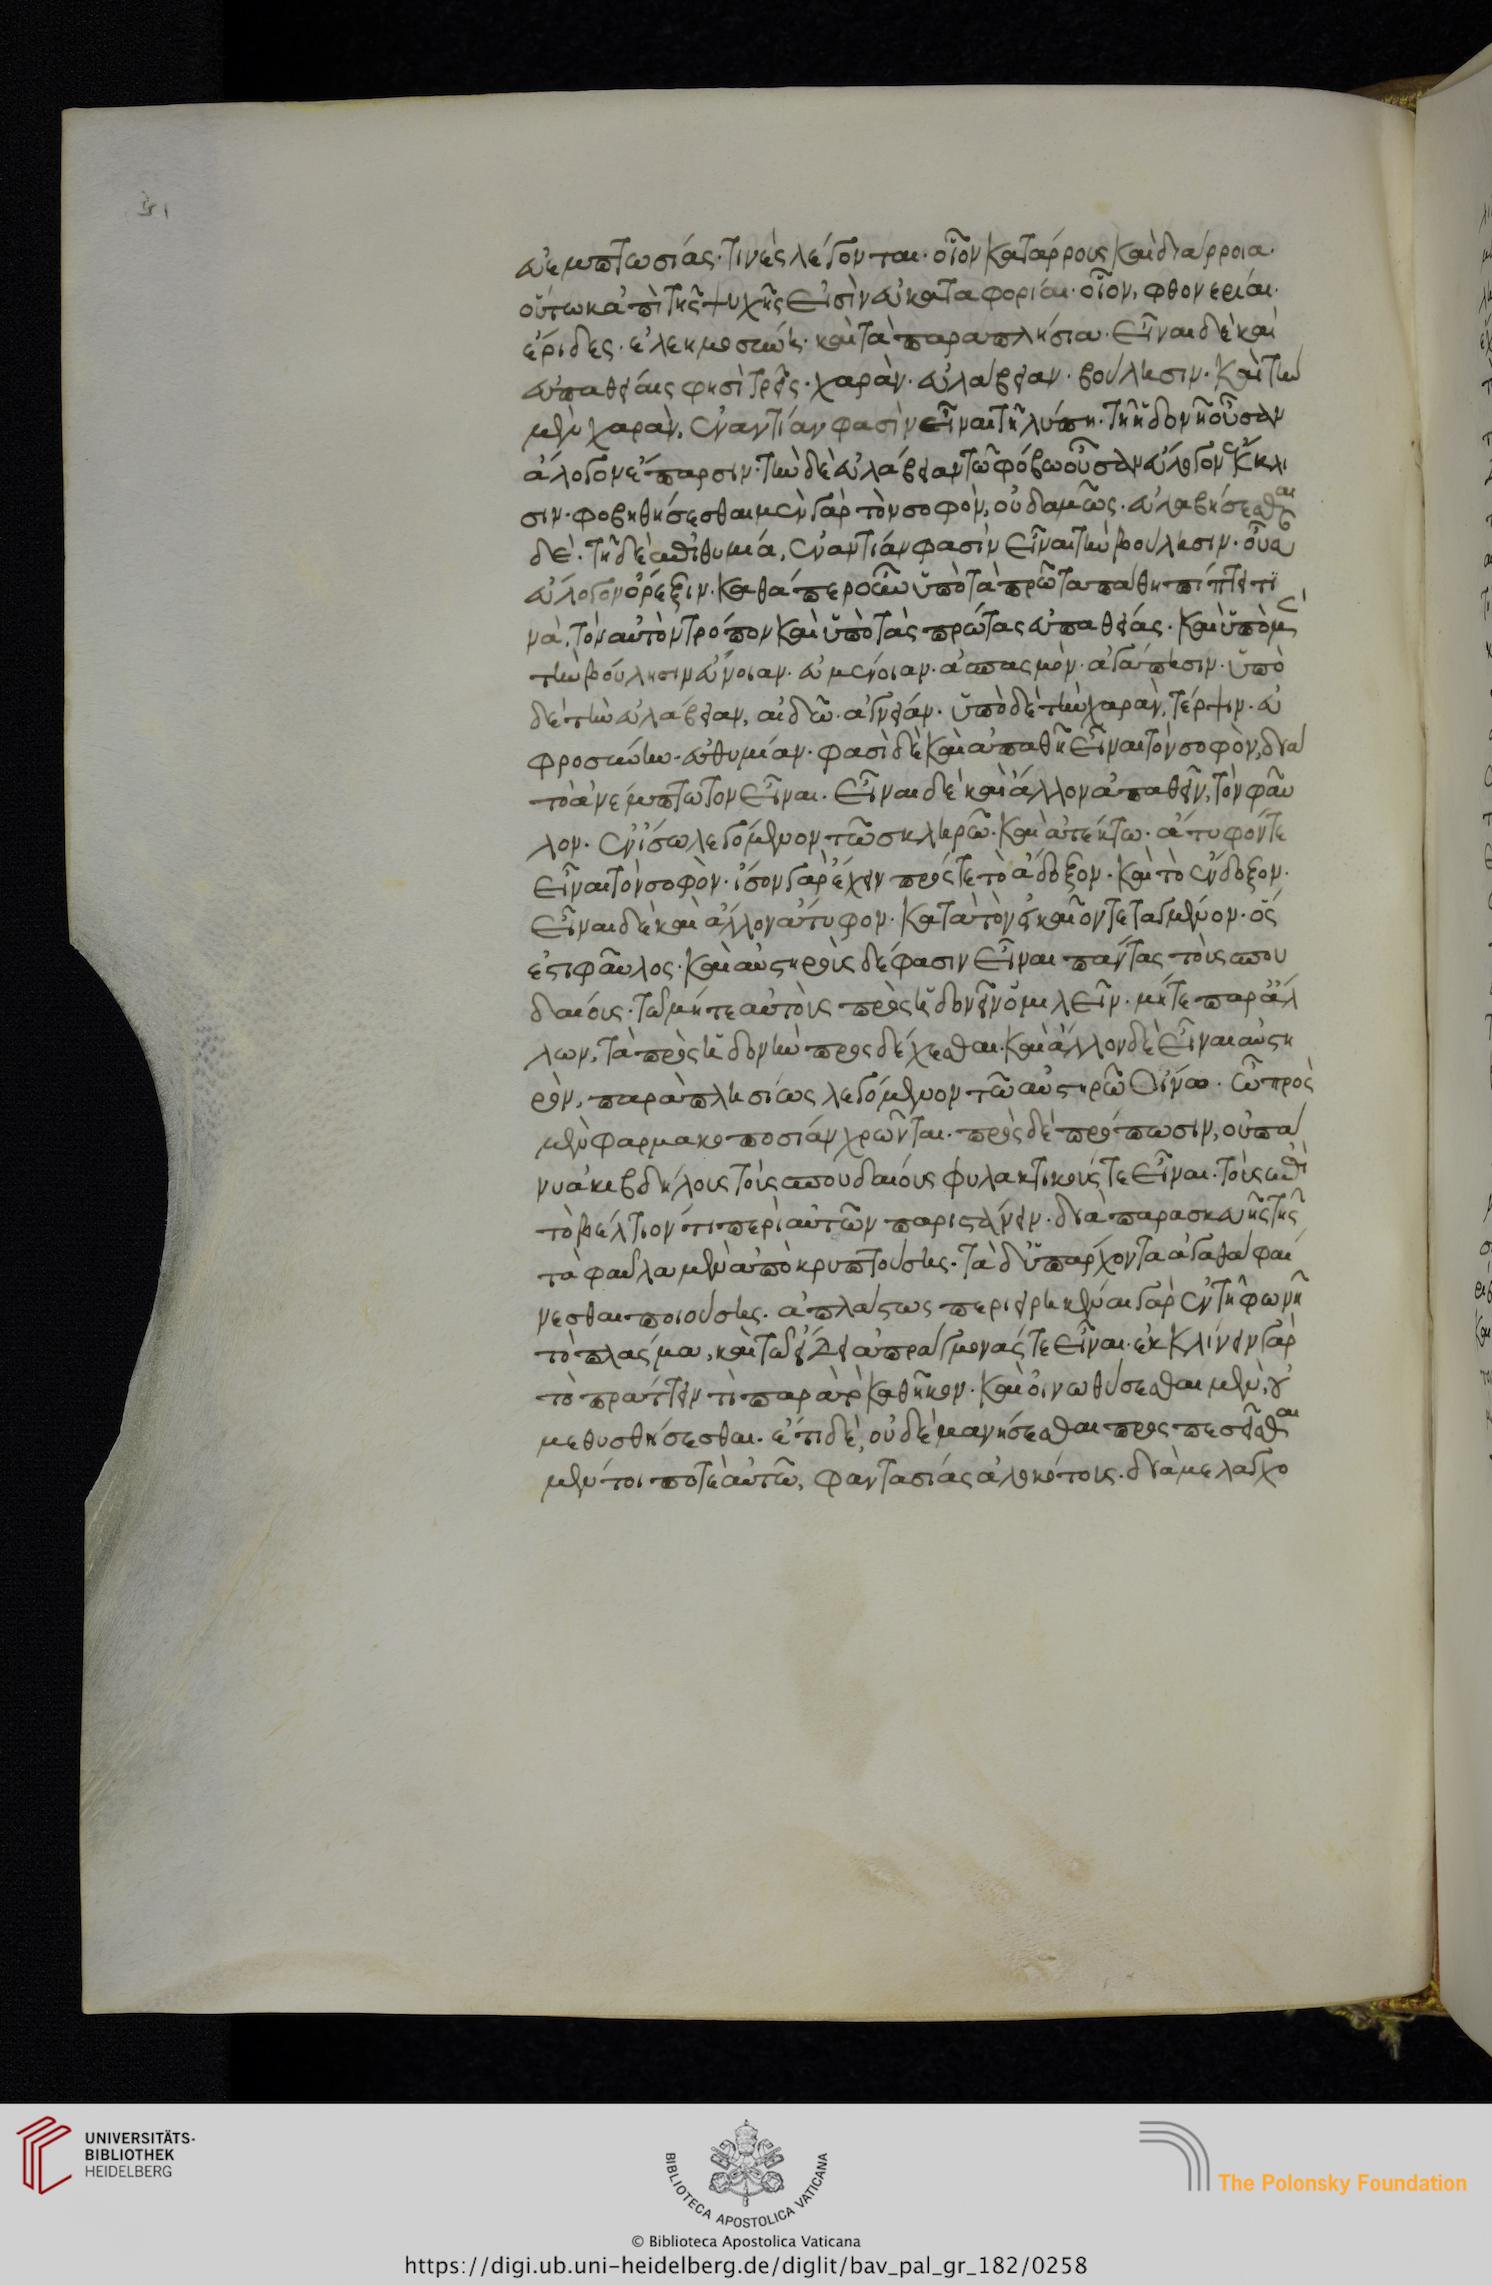 εὐεμπτωσίαι τινὲς λέγονται· οἷον κατάρρους καὶ διάρροια·
οὕτω κἀπὶ τῆς ψυχῆς εἰσὶν εὐκαταφορίαι· οἷον, φθονερίαι·
ἔριδες· ἐλεημοσύναι· καὶ τὰ παραπλήσια· εἶναι δὲ καὶ
εὐπαθείας φησὶ τρεῖς· χαρὰν· εὐλάβειαν· βούλησιν· καὶ τὴν
μὲν χαρὰν, ἐναντίαν φασὶν εἶναι τῇ λύπῃ· τῇ ἡδονῇ οὖσαν
ἄλογον ἔπαρσιν· τὴν δὲ εὐλάβειαν τῷ φόβω οὖσαν εὔλογον ἔκκλι
σιν· φοβηθήσεσθαι μὲν γὰρ τὸν σοφὸν, οὐδαμῶς· εὐλαβήσεσθαι
δὲ· τῇ δὲ ἐπιθυμία, ἐναντίαν φασὶν εἶναι τὴν βούλησιν· οὖσαν
εὔλογον ὄρεξιν· καθάπερ οὖν ὑπὸ τὰ πρῶτα πάθη πίπτει τι
νὰ, τὸν αὐτὸν τρόπον καὶ ὑπὸ τὰς πρώτας εὐπαθείας· καὶ ὑπὸ μὲν
τὴν βούλησιν εὔνοιαν· εὐμένοιαν· ἀσπασμὸν· ἀγάπησιν· ὑπὸ
δὲ τὴν εὐλάβειαν, αἰδῶ· ἁγνείαν· ὑπὸ δὲ τὴν χαρὰν, τέρψιν· εὐ
φροσύνην· εὐθυμίαν· φασὶ δὲ καὶ ἀπαθῆ εἶναι τὸν σοφὸν, διὰ
τὸ ἀνέμπτωτον εἶναι· εἶναι δὲ καὶ ἄλλον ἀπαθεῖν, τὸν φαῦ
λον· ἐν ἴσω λεγόμενον τῷ σκληρῷ· καὶ ἀτέκτω· ἄτυφόν τε
εἶναι τὸν σοφὸν· ἴσον γὰρ ἔχειν πρός τε τὸ ἄδοξον· καὶ τὸ ἔνδοξον·
εἶναι δὲ καὶ ἄλλον ἄτυφον· κατὰ τὸν εἰκαῖόν τεταγμένον· ὅς
ἐστι φαῦλος· καὶ αὐστηροὺς δέ φασιν εἶναι πάντας τοὺς σπου
δαίους· τῷ μήτε αὐτοὺς πρὸς ἡδονεῖν ὁμιλεῖν· μήτε παρ' ἄλ
λων, τὰ πρὸς ἡδονὴν προσδέχεσθαι· καὶ ἄλλον δὲ εἶναι αὐστη
ρὸν, παραπλησίως λεγόμενον τῷ αὐστηρῷ οἴνω· ᾧ πρὸς
μὲν φαρμακοποσίαν χρῶνται· πρὸς δὲ πρόπωσιν, οὐ πά
νυ ἀκιβδήλους τοὺς σπουδαίους φυλακτικούς τε εἶναι· τοὺς ἐπὶ
τὸ βέλτιόν τι περὶ αὐτῶν παριστάνειν· διὰ παρασκευῆς τῆς
τὰ φαῦλα μὲν ἀποκρυπτούσης· τὰ δ' ὑπάρχοντα ἀγαθὰ φαί
νεσθαι ποιούσης· ἀπλάστως περιειρηκέναι γὰρ ἐν τῇ φωνῇ
τὸ πλάσμα, καὶ τῷ εἴδει ἀπράγμονάς τε εἶναι· ἐκκλίνειν γὰρ
τὸ πράττειν τι παρὰ τὸ καθῆκον· καὶ οἰνωθήσεσθαι μὲν, οὐ
μεθυσθήσεσθαι· ἔτι δὲ, οὐδὲ μανήσεσθαι προσπεσεῖσθαι
μέντοι ποτὲ αὐτῷ, φαντασίας ἀλλοκότους· διὰ μελαγχο
UNIVERSITÄTS-
BIBLIOTHEK
HEIDELBERG
BIBLIOTECA APOSTOLICA VATICANA
The Polonsky Foundation
© Biblioteca Apostolica Vaticana
https://digi.ub.uni-heidelberg.de/diglit/bav_pal_gr_182/0258